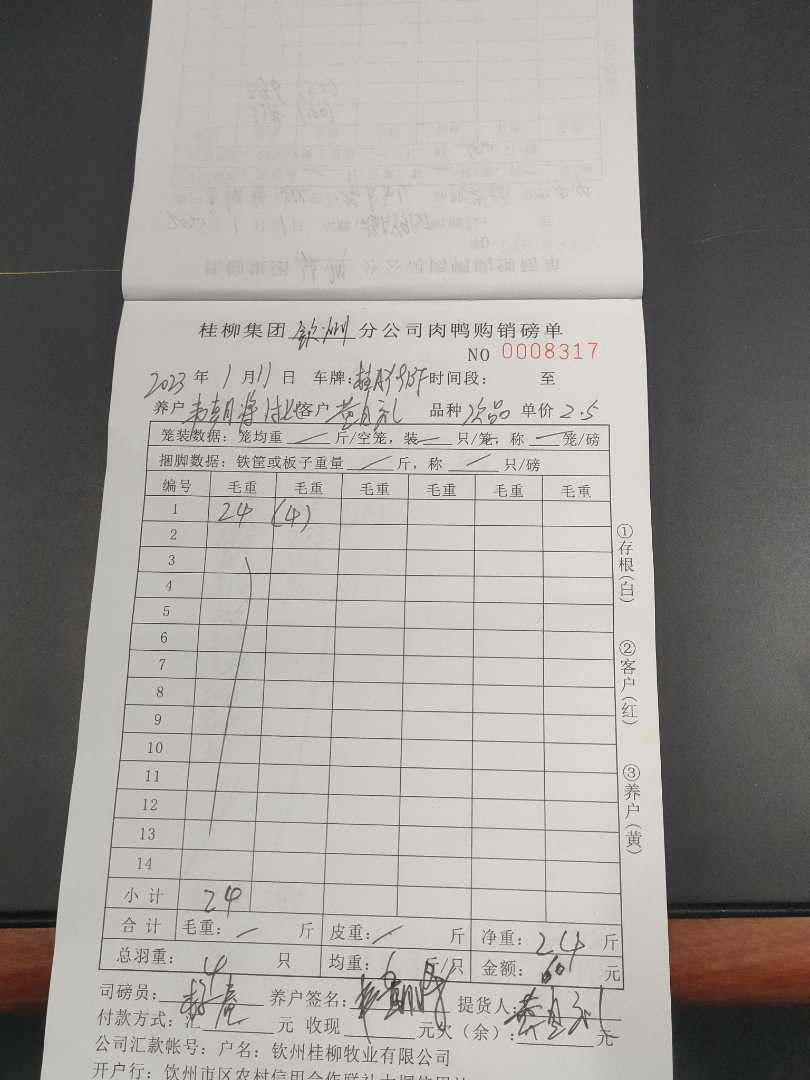 桂柳集团 钦州 分公司肉鸭购销磅单
NO 0008317
2023 年 1 月 11 日 车牌: 时间段: 至
养户 客户 品种 次品 单价 2.5
笼装数据: 笼均重 / 斤/空笼, 装 / 只/笼, 称 / 笼/磅
捆脚数据: 铁筐或板子重量 / 斤, 称 / 只/磅
编号 毛重 毛重 毛重 毛重 毛重 毛重
1 24 (4)
2
3
4
5
6
7
8
9
10
11
12
13
14
小计 24
合计 毛重: / 斤 皮重: / 斤 净重: 24 斤
总羽重: 4 只 均重: 6 斤/只 金额: 60 元
司磅员: 养户签名: 提货人:
付款方式: 汇 元 收现 元欠(余): 元
公司汇款帐号: 户名: 钦州桂柳牧业有限公司
开户行: 钦州市区农村信用合作联社
①存根(白) ②客户(红) ③养户(黄)